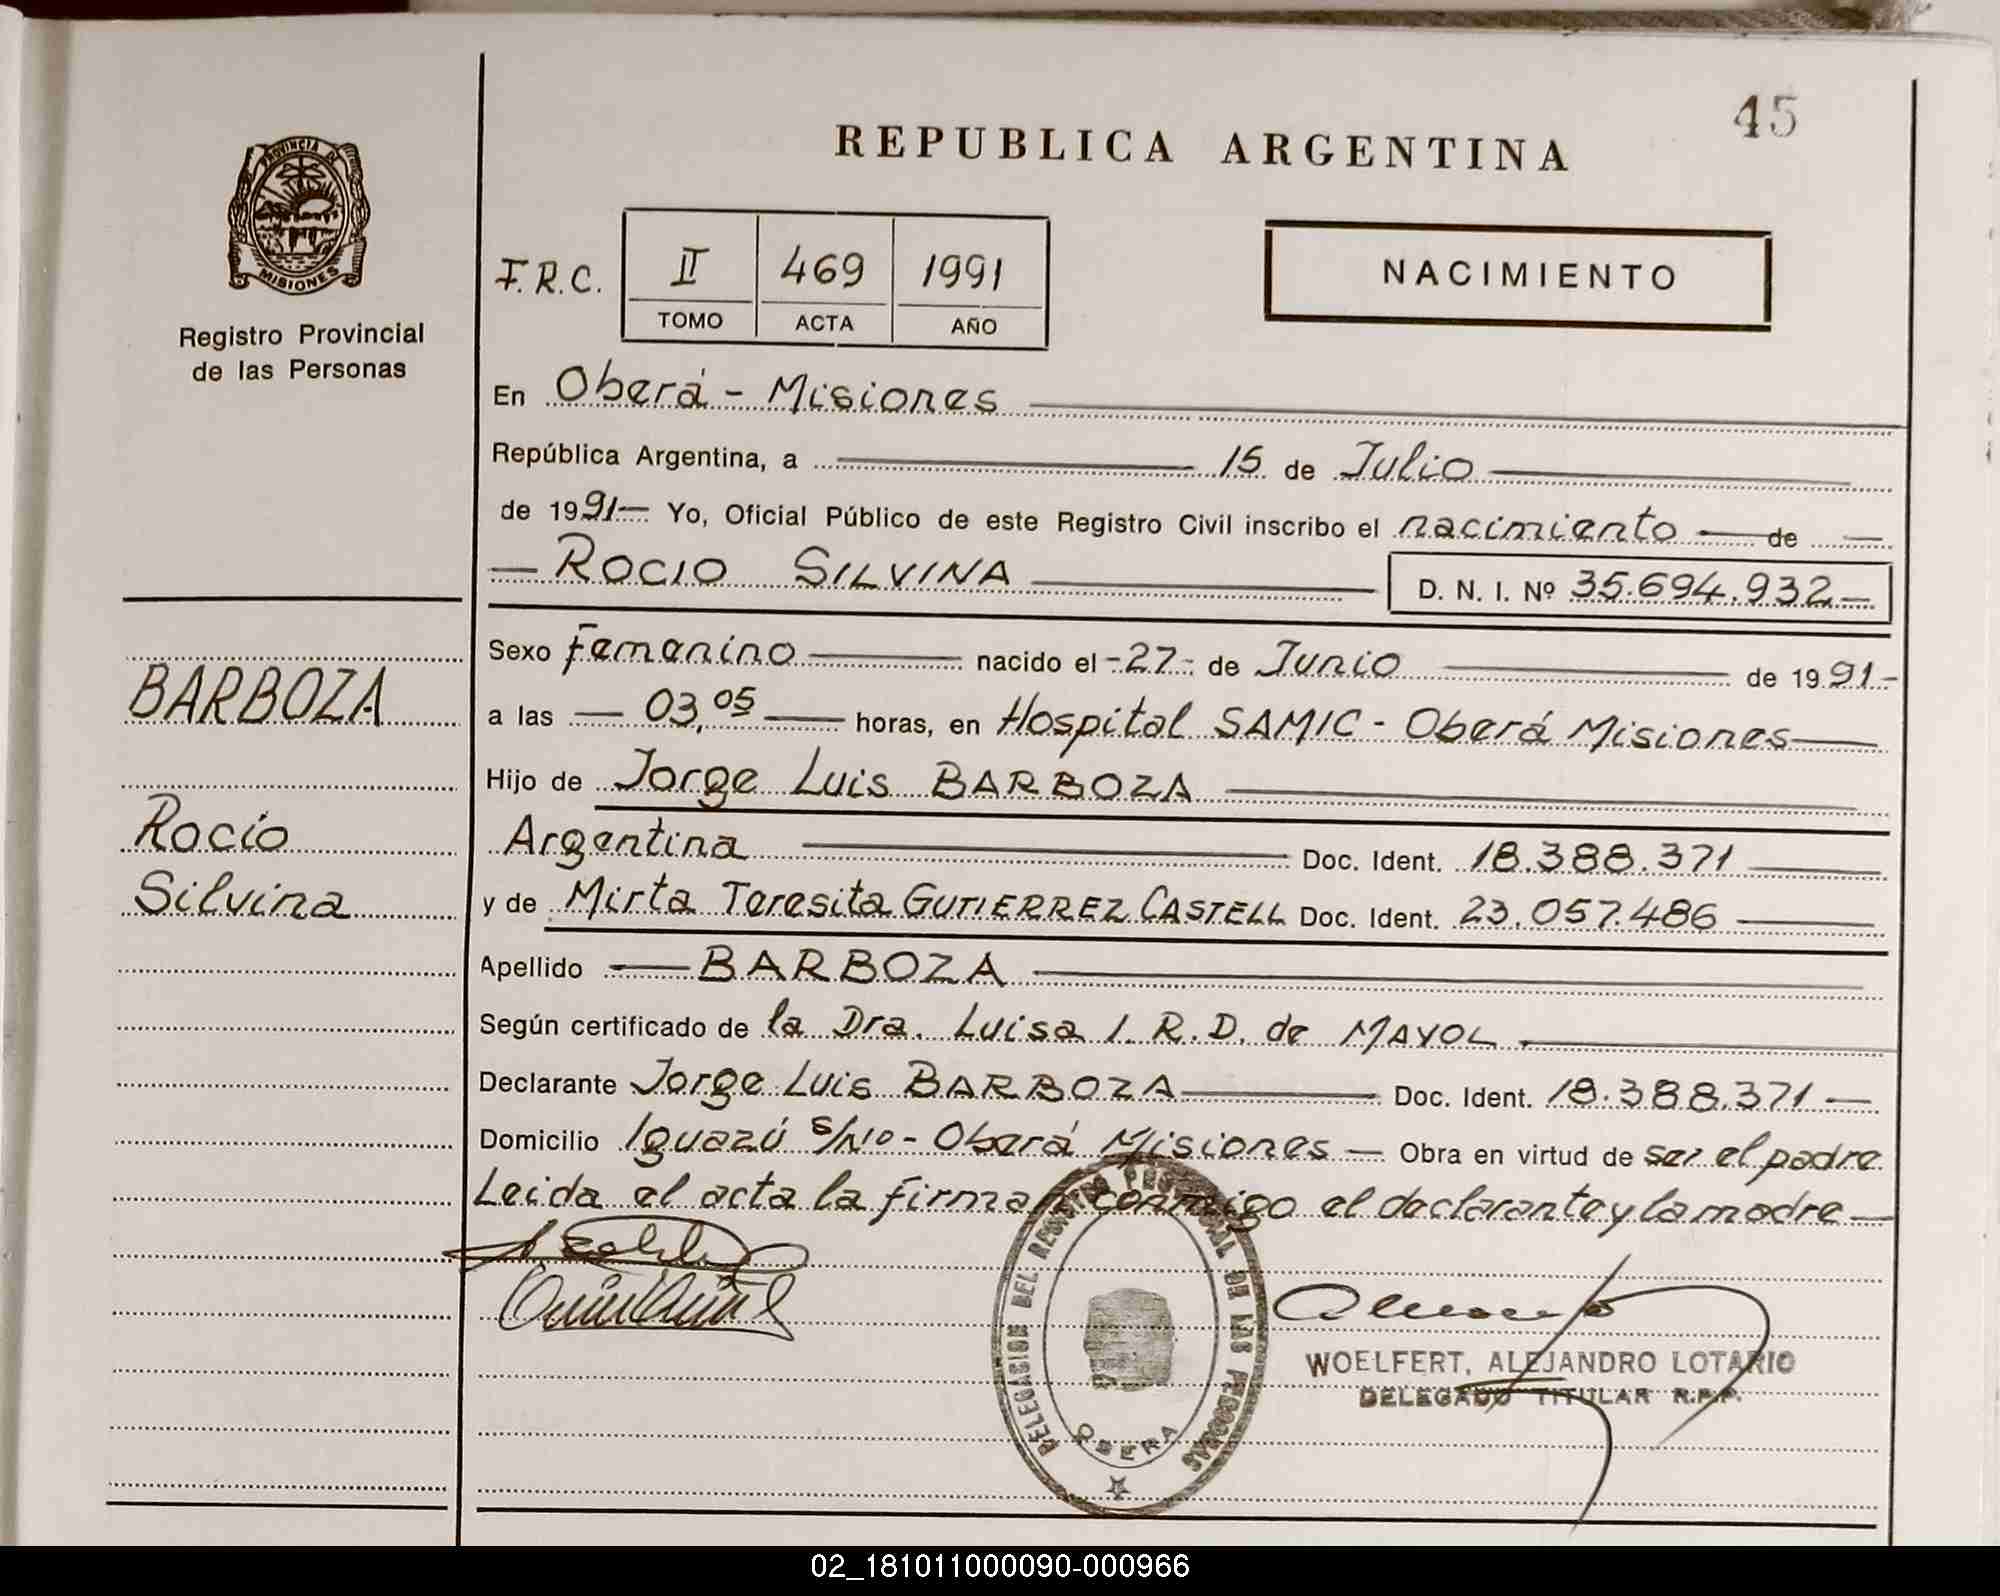 45
REPUBLICA ARGENTINA
PROVINCIA DE
MISIONES
Registro Provincial
de las Personas
F.R.C. II 469 1991
TOMO ACTA AÑO
NACIMIENTO
En Oberá - Misiones
República Argentina, a 15 de Julio
de 1991 Yo, Oficial Público de este Registro Civil inscribo el nacimiento de
ROCIO SILVINA D. N. I. Nº 35.694.932
Sexo Femenino nacido el -27- de Junio de 1991-
a las 03,05 horas, en Hospital SAMIC - Oberá Misiones
Hijo de Jorge Luis BARBOZA
Argentina Doc. Ident. 18.388.371
y de Mirta Teresita GUTIERREZ CASTELL Doc. Ident. 23.057.486
Apellido BARBOZA
Según certificado de la Dra. Luisa I. R. D. de MAYOL
Declarante Jorge Luis BARBOZA Doc. Ident. 18.388.371
Domicilio Iguazú S/No - Oberá Misiones Obra en virtud de ser el padre
Leida el acta la firman conmigo el declarante y la madre
BARBOZA
Rocío
Silvina
DELEGACION DEL REGISTRO PROVINCIAL DE LAS PERSONAS
OBERA
WOELFERT, ALEJANDRO LOTARIO
DELEGADO TITULAR R.P.P.
02_181011000090-000966